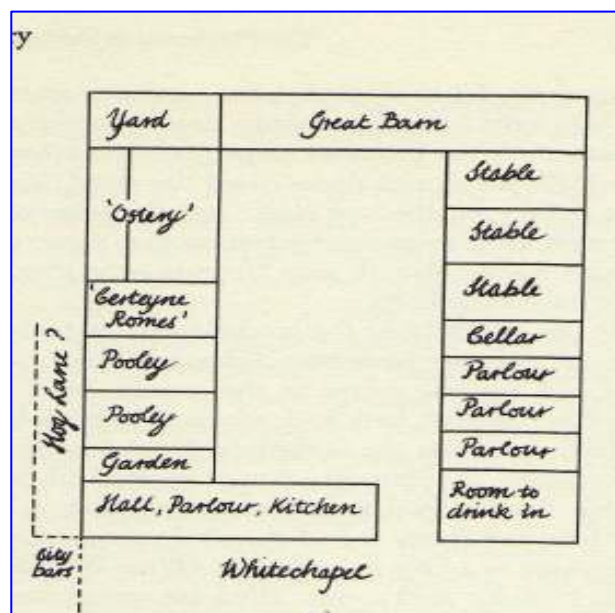 ry
Yard
Great Barn
'Ostery'
'Certeyne
Romes'
Pooley
Pooley
Garden
Hall, Parlour, Kitchen
Stable
Stable
Stable
Cellar
Parlour
Parlour
Parlour
Room to
drink in
Hog Lane?
City
bars
Whitechapel